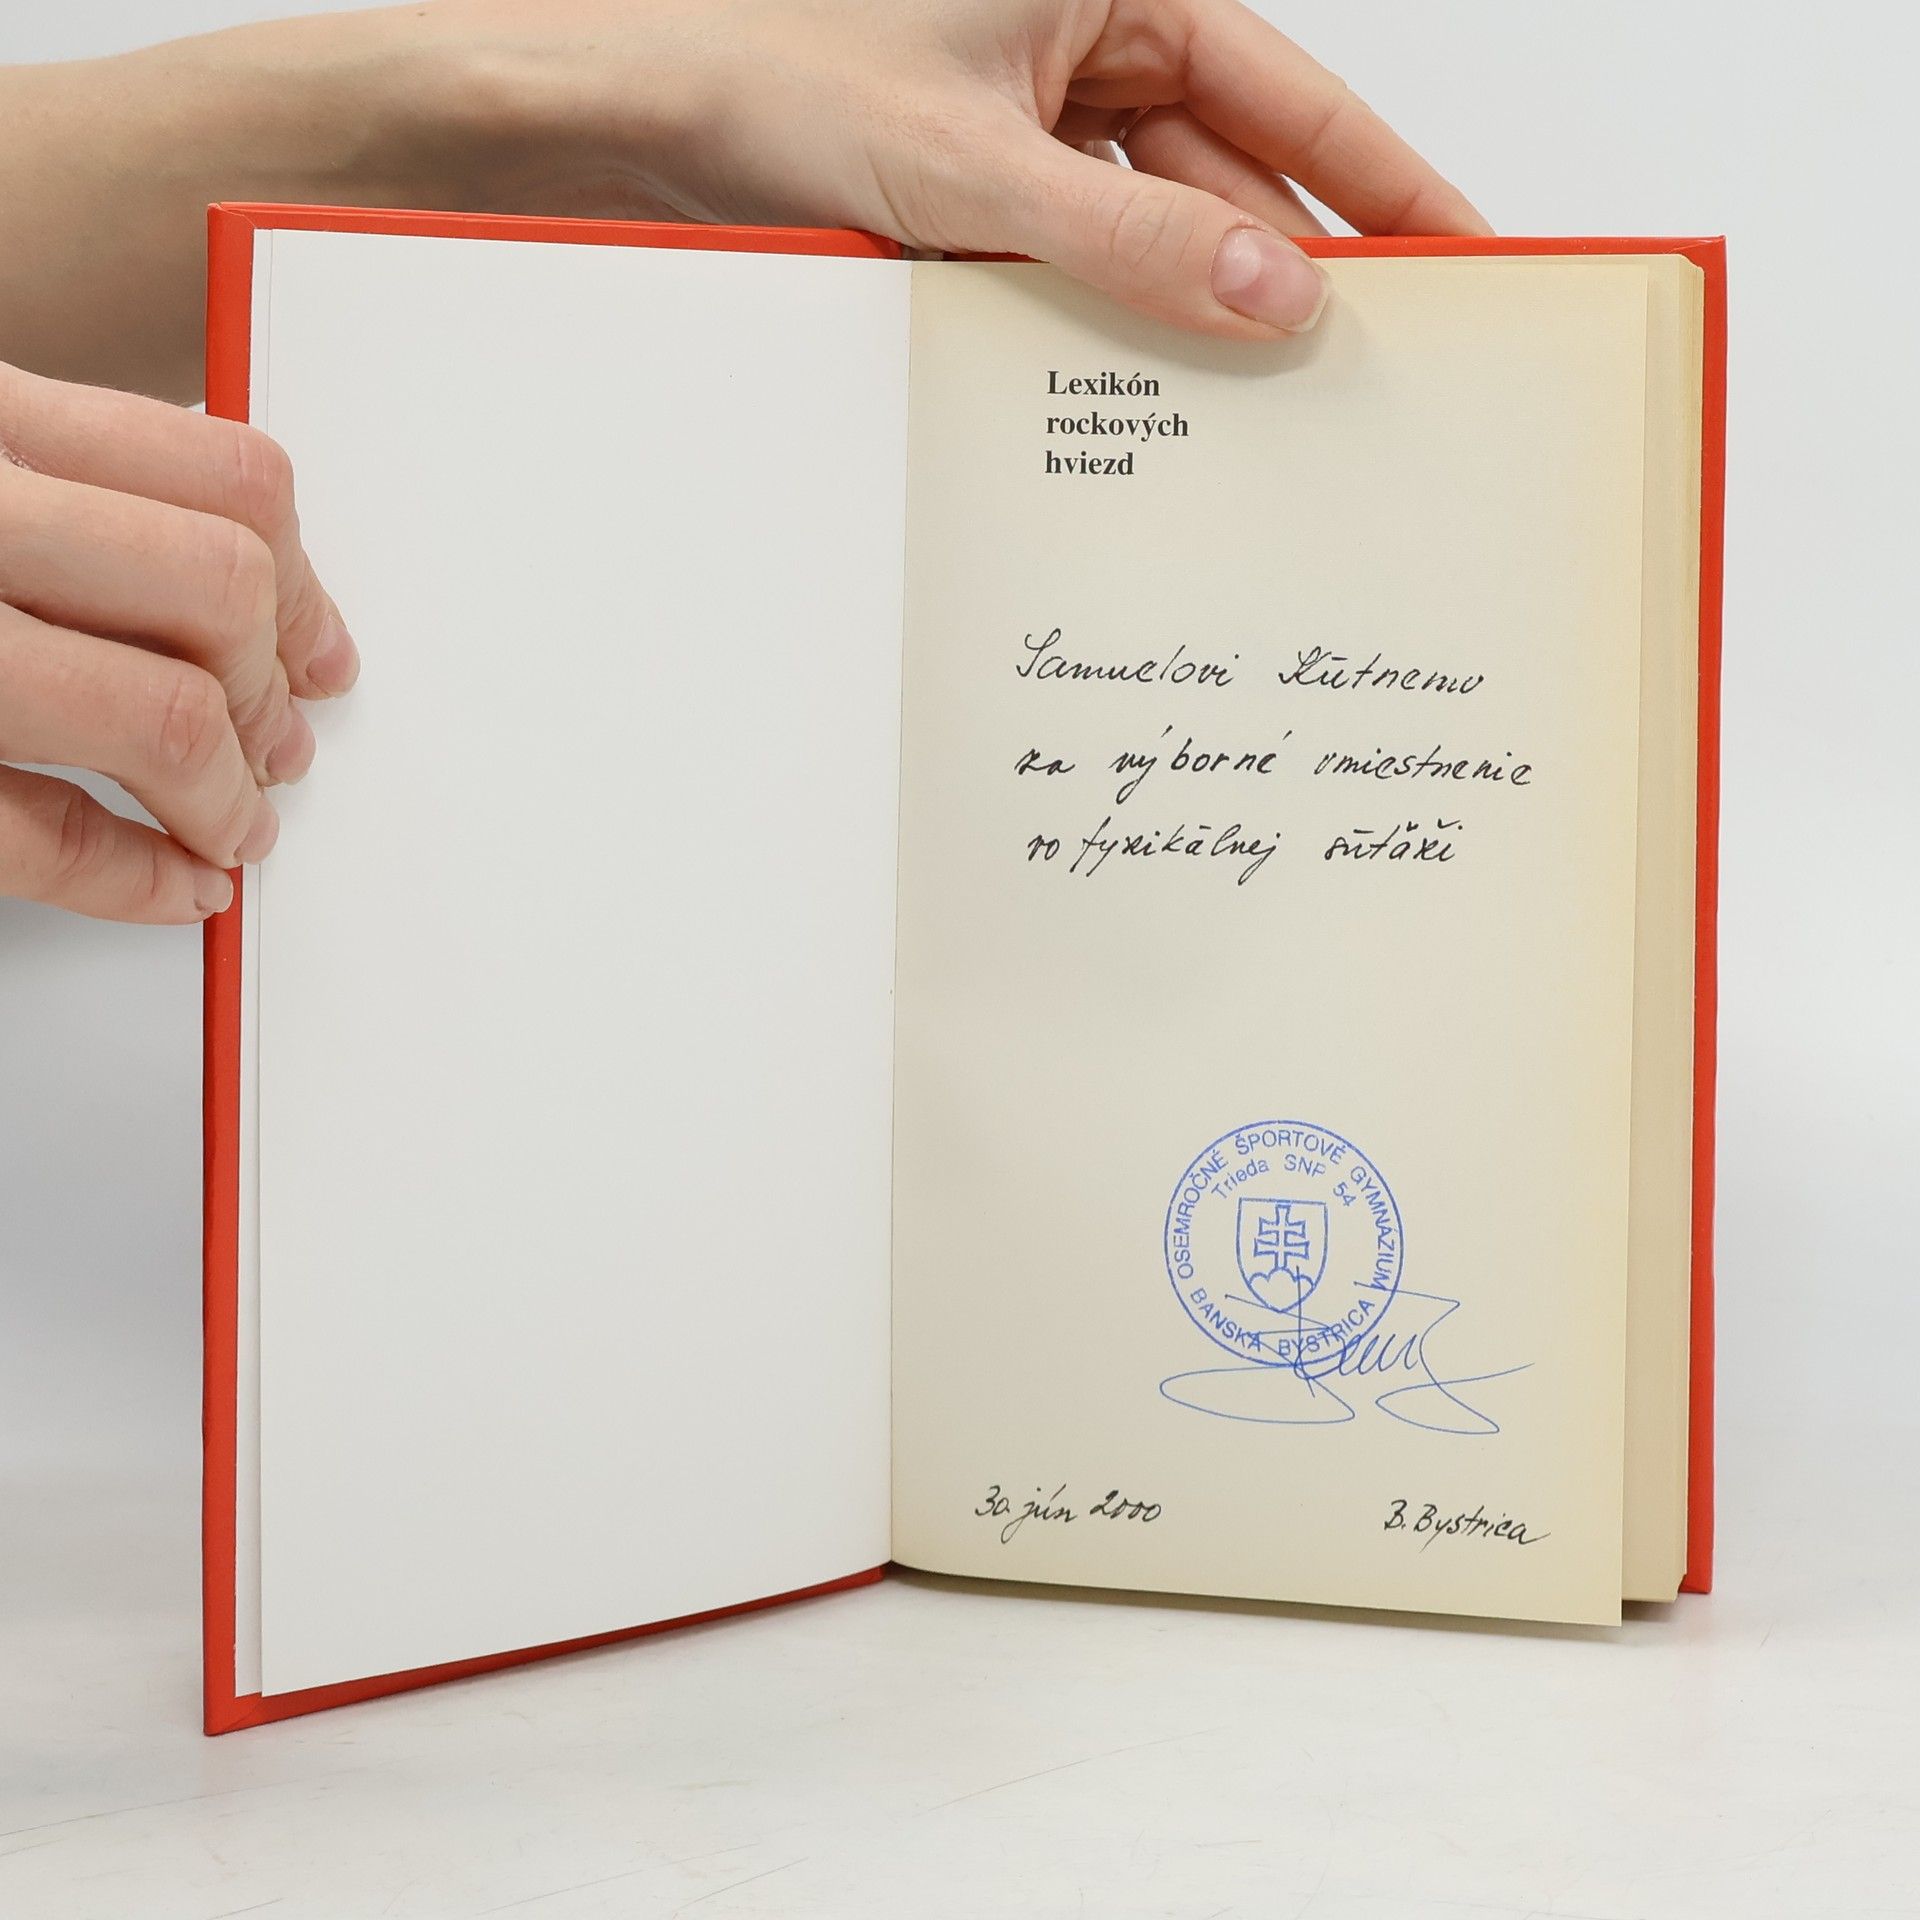 Lexikón
rockových
hviezd
Samuelovi Kútnemu
za výborné umiestnenie
vo fyzikálnej súťaži
OSEMROČNÉ ŠPORTOVÉ GYMNÁZIUM
Trieda SNP 54
BANSKÁ BYSTRICA
30. jún 2000
B. Bystrica